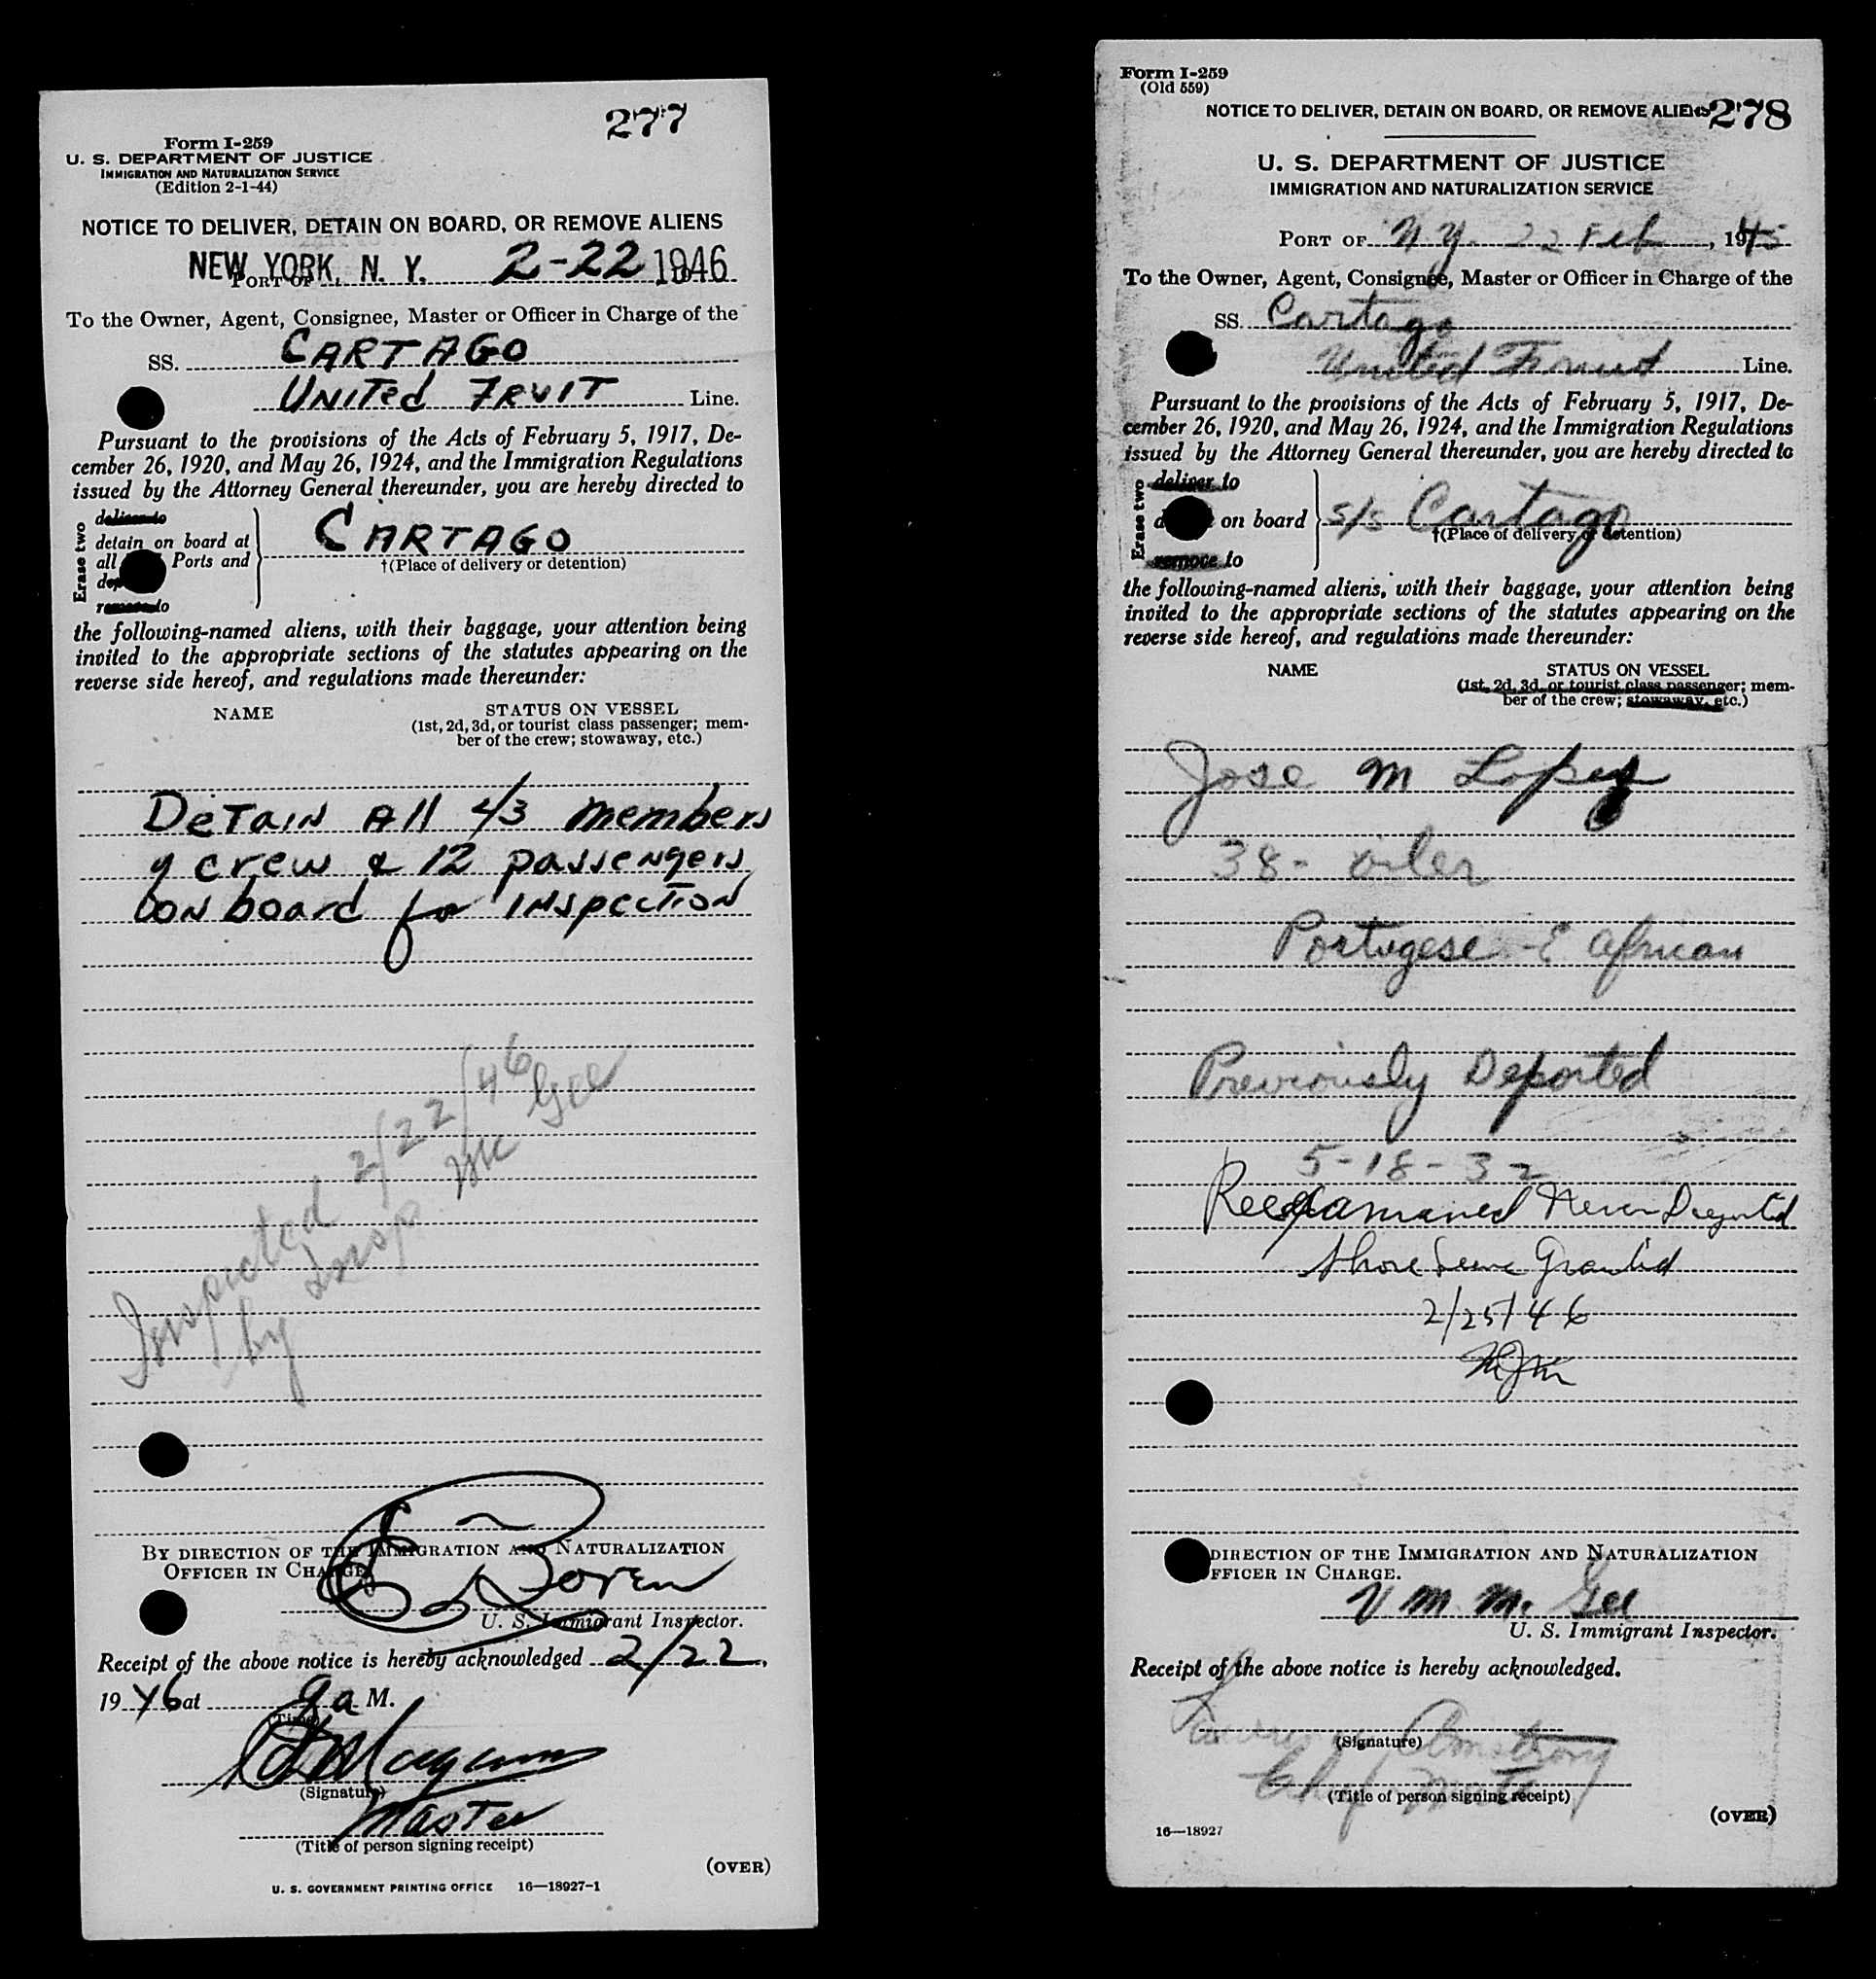 277
Form I-259
U. S. DEPARTMENT OF JUSTICE
IMMIGRATION AND NATURALIZATION SERVICE
(Edition 2-1-44)
NOTICE TO DELIVER, DETAIN ON BOARD, OR REMOVE ALIENS
NEW YORK, N. Y. 2-22 1946
PORT OF
To the Owner, Agent, Consignee, Master or Officer in Charge of the
SS. CARTAGO
UNITED FRUIT Line.
Pursuant to the provisions of the Acts of February 5, 1917, De-
cember 26, 1920, and May 26, 1924, and the Immigration Regulations
issued by the Attorney General thereunder, you are hereby directed to
Erase two
deliver to
detain on board at
all Ports and
remove to
CARTAGO
†(Place of delivery or detention)
the following-named aliens, with their baggage, your attention being
invited to the appropriate sections of the statutes appearing on the
reverse side hereof, and regulations made thereunder:
NAME STATUS ON VESSEL
(1st, 2d, 3d, or tourist class passenger; mem-
ber of the crew; stowaway, etc.)
DETAIN All 43 members
of crew & 12 passengers
on board for INSPECTION
Inspected 2/22/46
by Insp. Mc Gee
BY DIRECTION OF THE IMMIGRATION AND NATURALIZATION
OFFICER IN CHARGE.
Boren
U. S. Immigrant Inspector.
Receipt of the above notice is hereby acknowledged 2/22,
1946 at 9 a M.
(Time)
(Signature)
Master
(Title of person signing receipt)
(OVER)
U. S. GOVERNMENT PRINTING OFFICE 16—18927-1
Form I-259
(Old 559)
NOTICE TO DELIVER, DETAIN ON BOARD, OR REMOVE ALIENS 278
U. S. DEPARTMENT OF JUSTICE
IMMIGRATION AND NATURALIZATION SERVICE
PORT OF N.Y. 22 Feb, 1945
To the Owner, Agent, Consignee, Master or Officer in Charge of the
SS. Cartago
United Fruit Line.
Pursuant to the provisions of the Acts of February 5, 1917, De-
cember 26, 1920, and May 26, 1924, and the Immigration Regulations
issued by the Attorney General thereunder, you are hereby directed to
Erase two
deliver to
on board
remove to
s/s Cartago
†(Place of delivery or detention)
the following-named aliens, with their baggage, your attention being
invited to the appropriate sections of the statutes appearing on the
reverse side hereof, and regulations made thereunder:
NAME STATUS ON VESSEL
(1st, 2d, 3d, or tourist class passenger; mem-
ber of the crew; stowaway, etc.)
Jose M Lopez
38- oiler
Portugese - E African
Previously Deported
5-18-32
Reexamined Never Deported
Shore Leave Granted
2/25/46
BY DIRECTION OF THE IMMIGRATION AND NATURALIZATION
OFFICER IN CHARGE.
V M McGee
U. S. Immigrant Inspector.
Receipt of the above notice is hereby acknowledged.
Armstrong
(Signature)
Chief Mate
(Title of person signing receipt)
16—18927
(OVER)